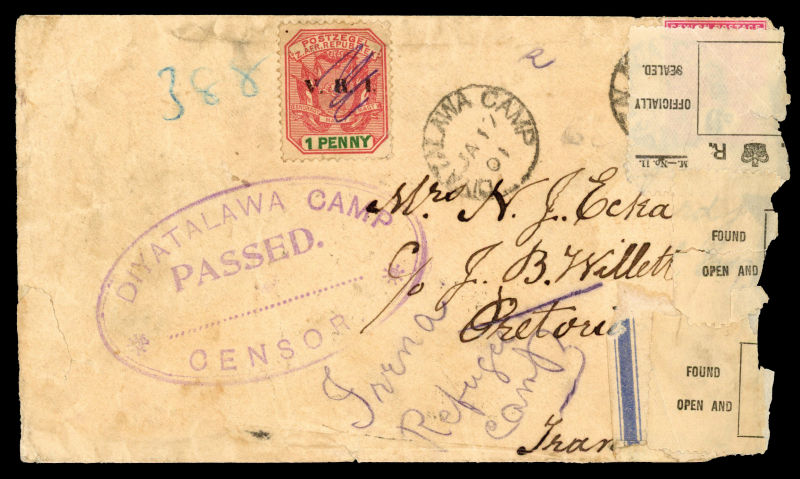 388
POSTZEGEL
Z. AFR. REPUBLIEK
V. R. I.
1 PENNY
DIYATALAWA CAMP
PASSED.
CENSOR
TALAWA CAMP
JA 17
01
Mrs N. J. Ecka
c/o J. B. Willett
Pretoria
Tran
Irena
Refugee
Camp
CEYLON POSTAGE
OFFICIALLY
SEALED.
M.—No. 11.
R.
FOUND
OPEN AND
FOUND
OPEN AND